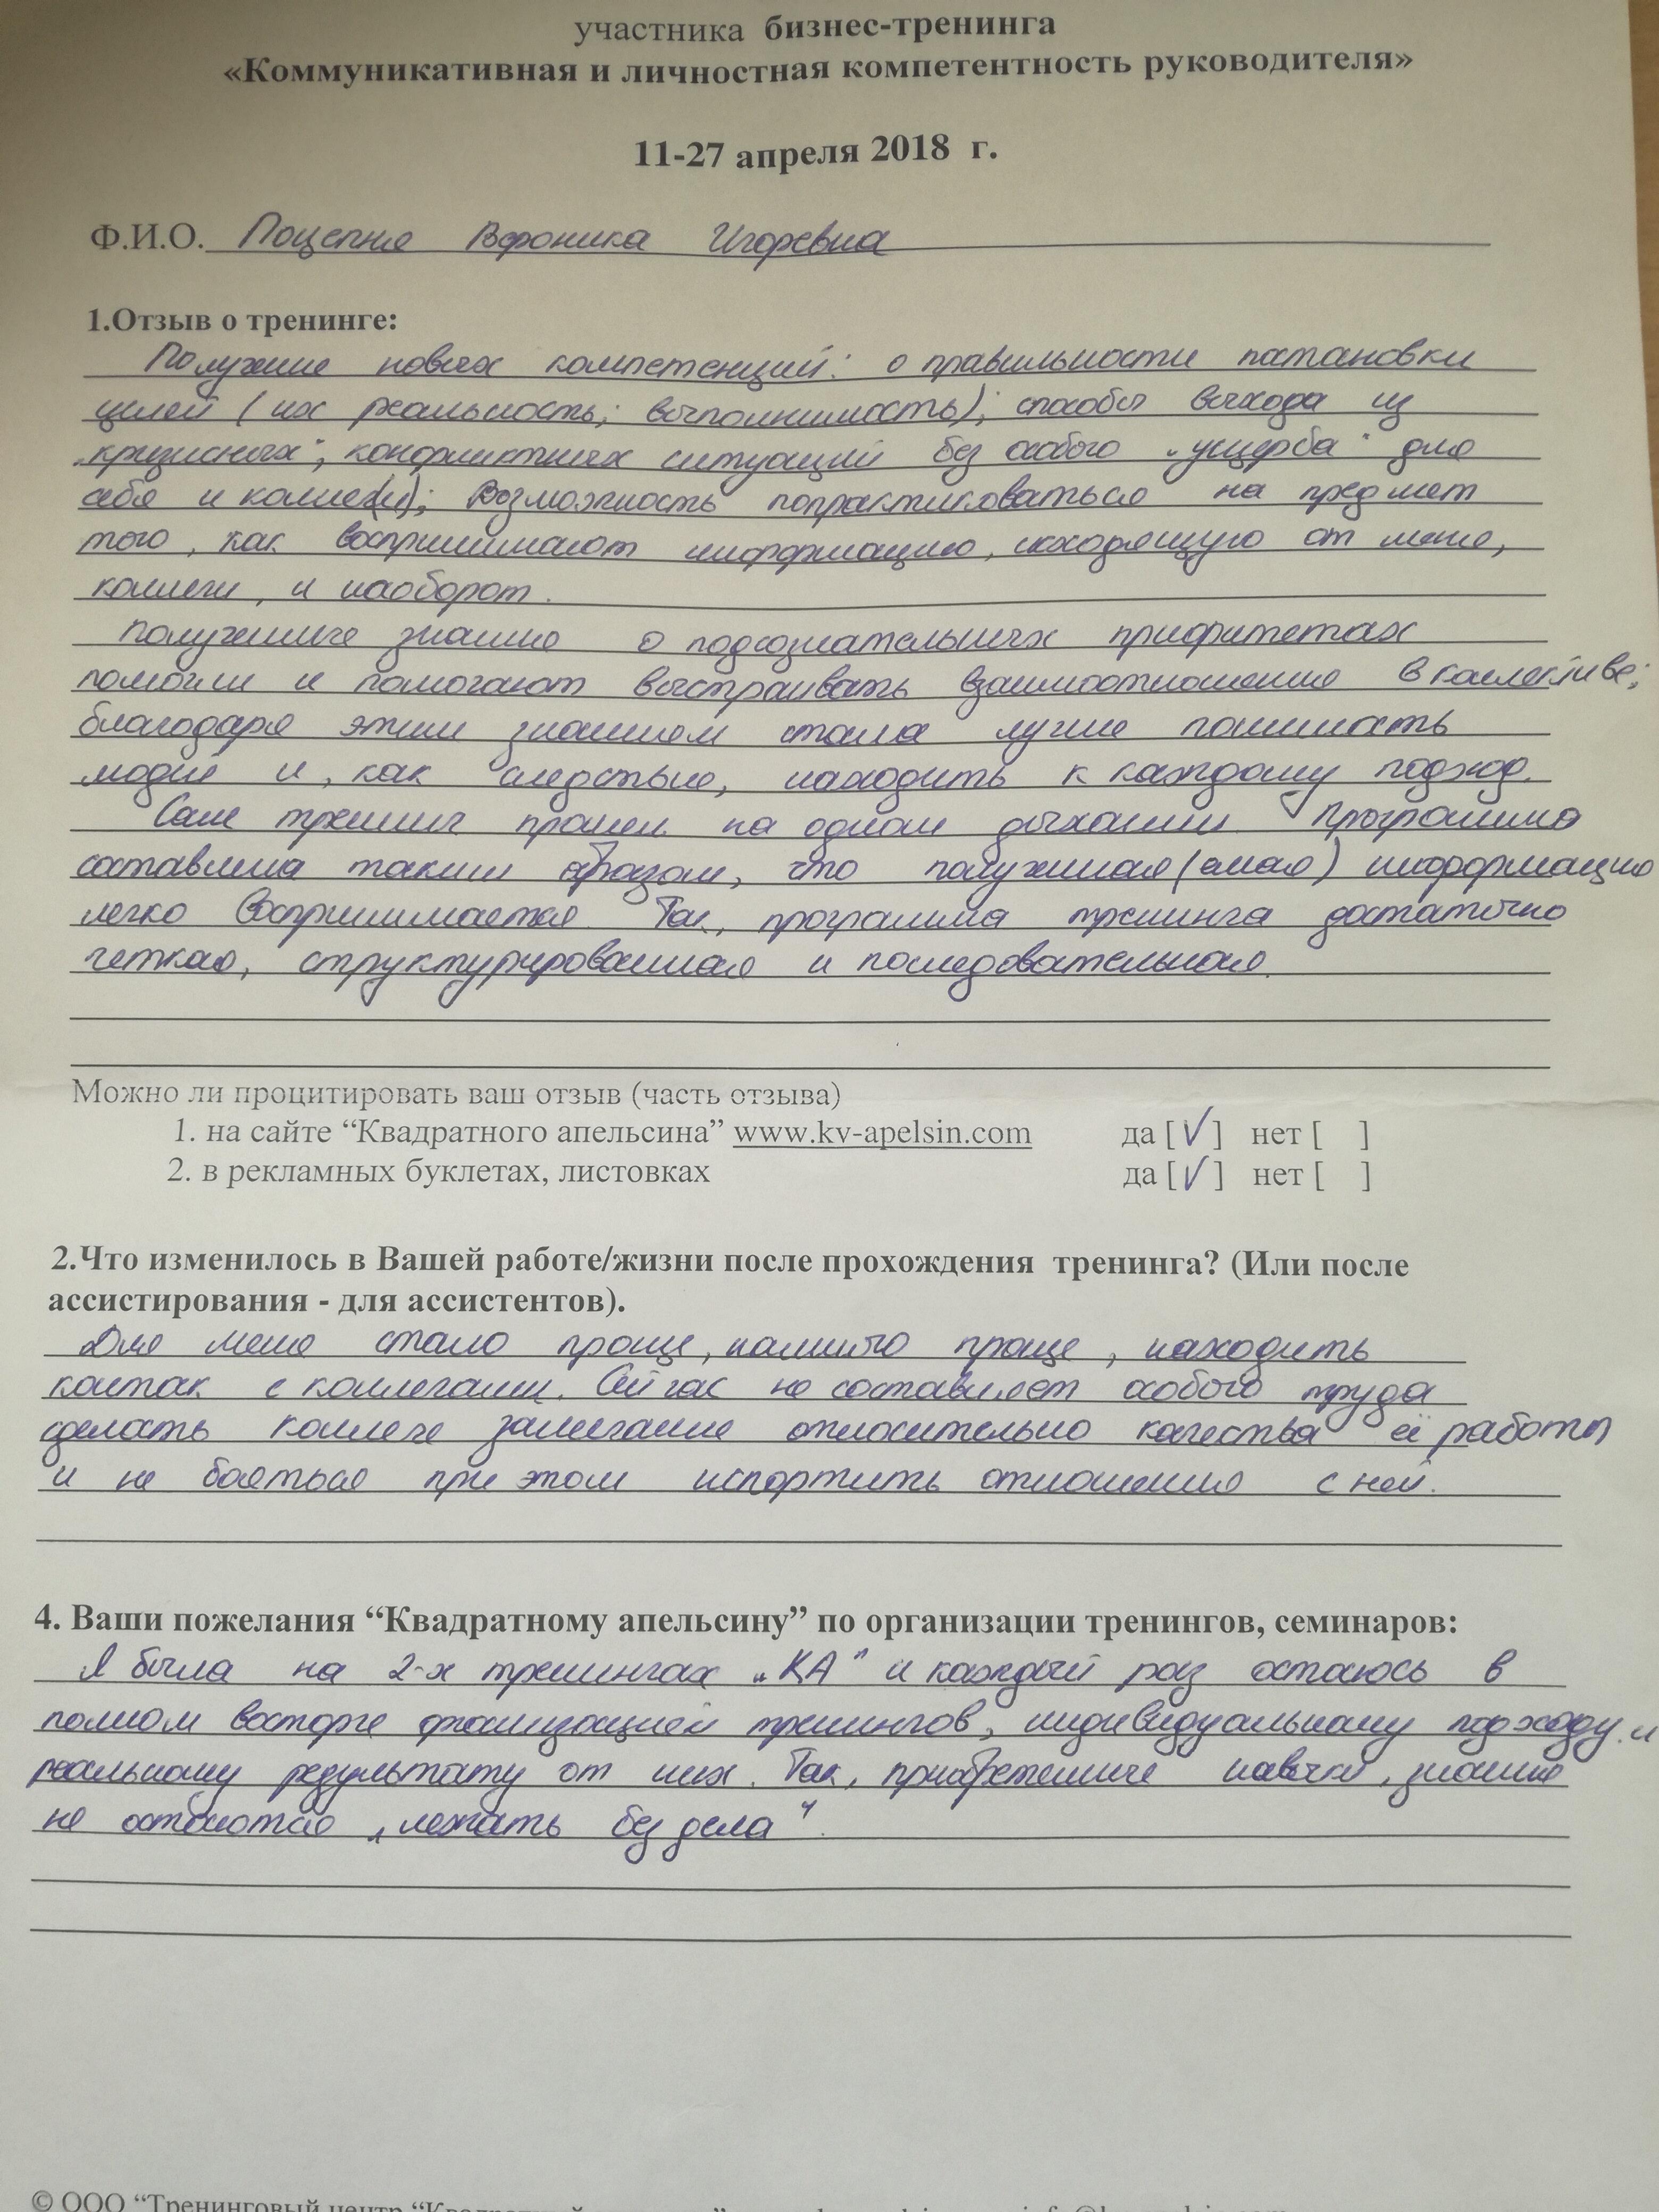 участника бизнес-тренинга
«Коммуникативная и личностная компетентность руководителя»
11-27 апреля 2018 г.
Ф.И.О. Поцепня Вероника Игоревна
1.Отзыв о тренинге:
Получение новых компетенций: о правильности постановки
целей (их реальность; выполнимость); способы выхода из
„кризисных“, конфликтных ситуаций без особого „ущерба“ для
себя и коллег(и); Возможность попрактиковаться на предмет
того, как воспринимают информацию, исходящую от меня,
коллеги, и наоборот.
Полученные знания о подсознательных приоритетах
помогли и помогают выстраивать взаимоотношения в коллективе;
благодаря этим знаниям стала лучше понимать
людей и, как следствие, находить к каждому подход.
Сам тренинг прошел на одном дыхании. Программа
составлена таким образом, что получаемая (емая) информация
легко воспринимается. Так, программа тренинга достаточно
четкая, структурированная и последовательная.
Можно ли процитировать ваш отзыв (часть отзыва)
1. на сайте “Квадратного апельсина” www.kv-apelsin.com да [√] нет [ ]
2. в рекламных буклетах, листовках да [√] нет [ ]
2.Что изменилось в Вашей работе/жизни после прохождения тренинга? (Или после
ассистирования - для ассистентов).
Для меня стало проще, намного проще, находить
контак с коллегами. Сейчас не составляет особого труда
сделать коллеге замечание относительно качества её работы
и не бояться при этом испортить отношения с ней.
4. Ваши пожелания “Квадратному апельсину” по организации тренингов, семинаров:
Я была на 2-х тренингах „КА“ и каждый раз остаюсь в
полном восторге организацией тренингов, индивидуальному подходу и
реальному результату от них. Так, приобретенные навыки, знания
не остаются „лежать без дела“.
© ООО “Тренинговый центр